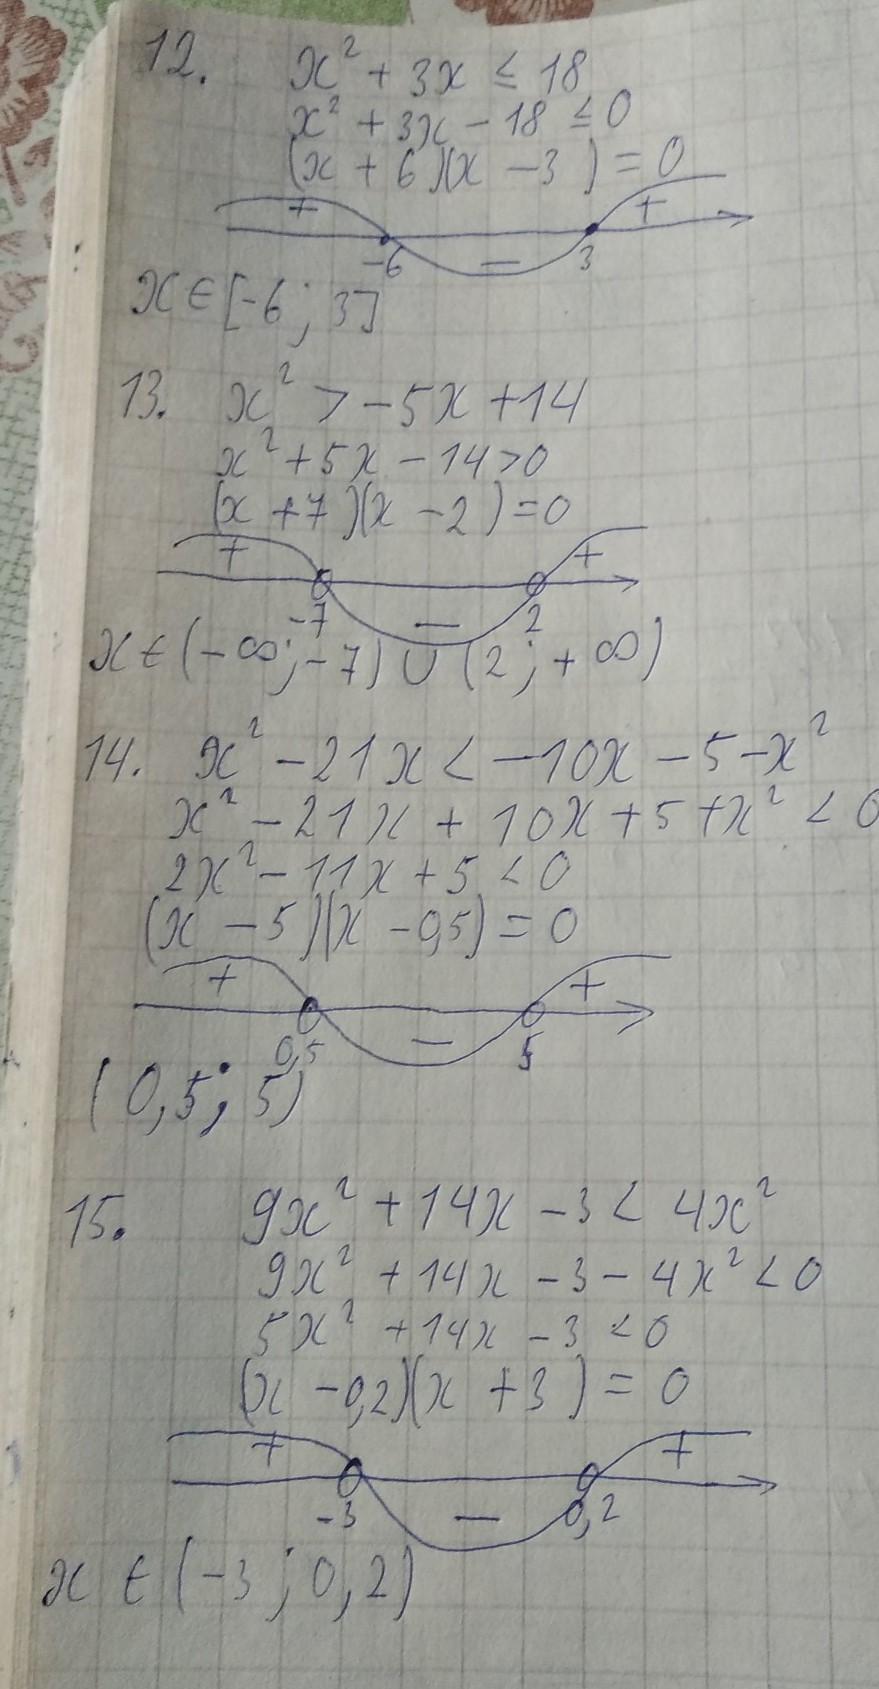 12. x² + 3x ≤ 18
x² + 3x - 18 ≤ 0
(x + 6)(x - 3) = 0
+ +
-6 - 3
x ∈ [-6; 3]
13. x² > -5x + 14
x² + 5x - 14 > 0
(x + 7)(x - 2) = 0
+ +
-7 - 2
x ∈ (-∞; -7) ∪ (2; +∞)
14. x² - 21x < -10x - 5 - x²
x² - 21x + 10x + 5 + x² < 0
2x² - 11x + 5 < 0
(x - 5)(x - 0,5) = 0
+ +
0,5 - 5
(0,5; 5)
15. 9x² + 14x - 3 < 4x²
9x² + 14x - 3 - 4x² < 0
5x² + 14x - 3 < 0
(x - 0,2)(x + 3) = 0
+ +
-3 - 0,2
x ∈ (-3; 0,2)